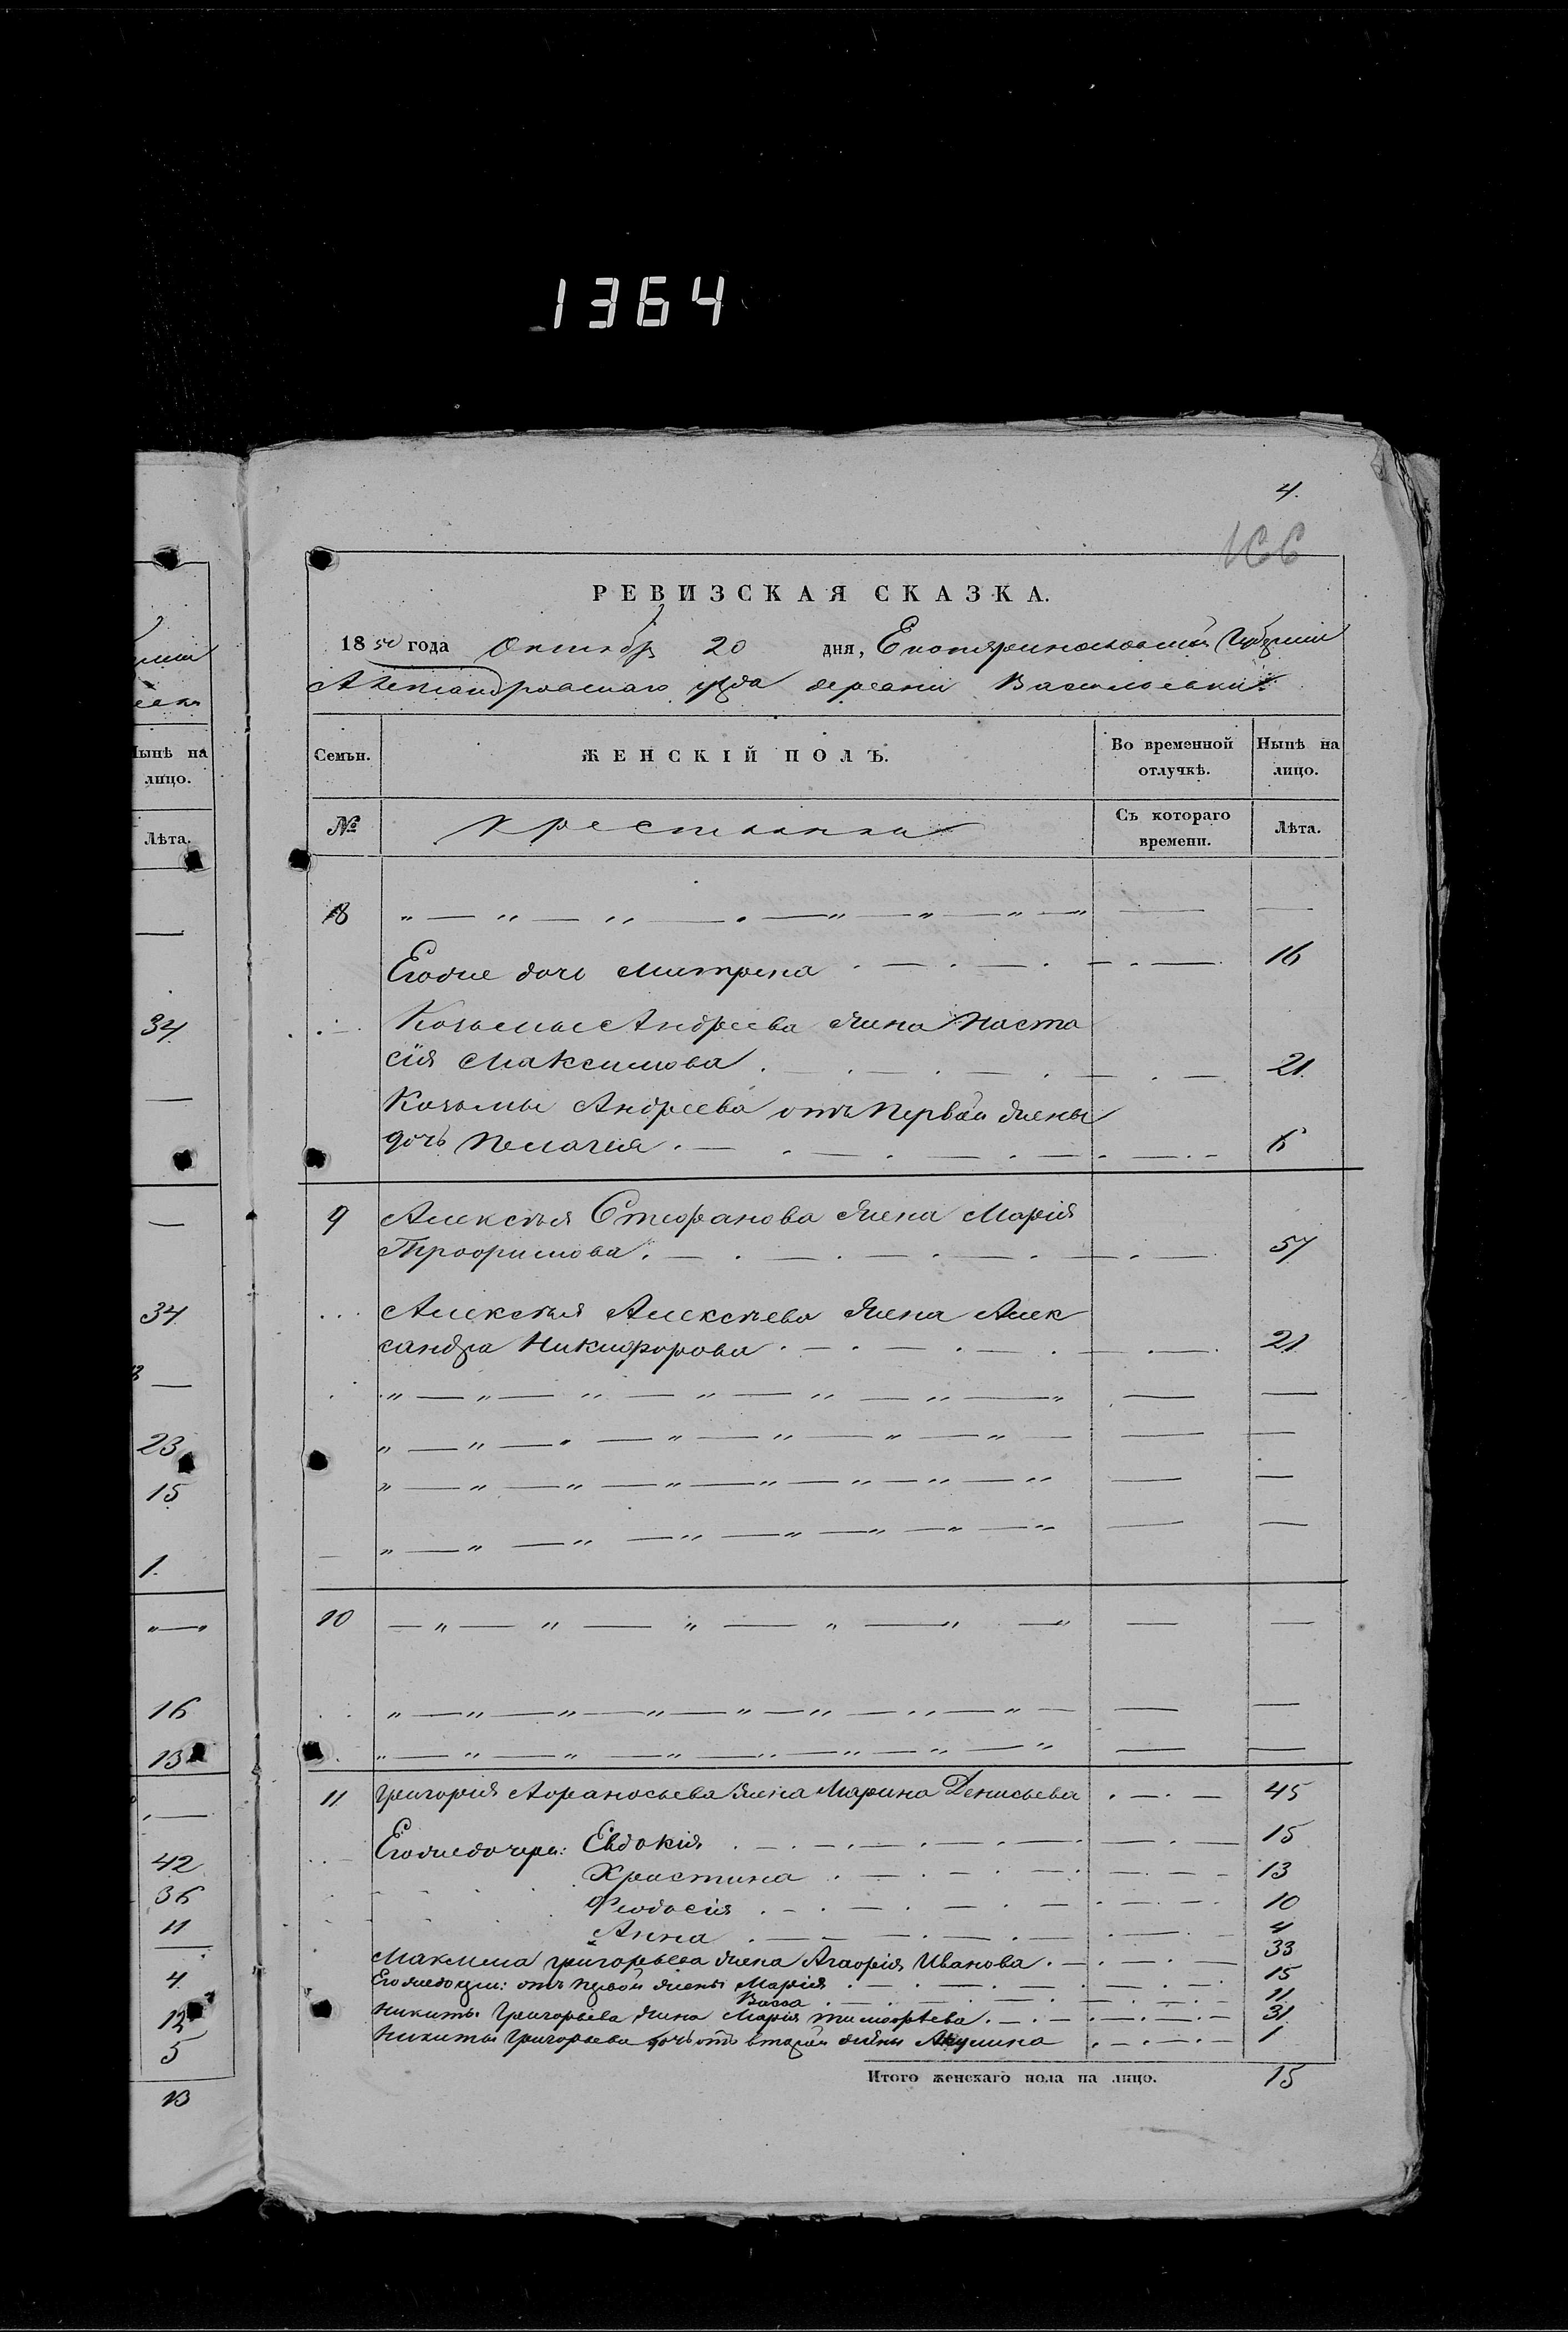 1364
4.
166
РЕВИЗСКАЯ СКАЗКА.
1850 года Октября 20 дня, Екатеринославской Губернии
Александровскаго уезда деревни Васильевки
Семьи. ЖЕНСКІЙ ПОЛЪ. Во временной отлучкѣ. Нынѣ на лицо.
№ Крестьянка Съ котораго времени. Лѣта.
8
Егоже дочь Митрена 16
Козьмы Андреева жена Наста
сія Максимова 21
Козьмы Андреева отъ первой жены
дочь Пелагия 6
9 Алексѣя Стефанова жена Марія
Трофимова 57
Алексѣя Алексѣева жена Алек
сандра Никифорова 21
10
11 Григорія Афанасьева жена Марина Денисьева 45
Егоже дочери: Евдокія 15
Христина 13
Феодосія 10
Анна 4
Максима Григорьева жена Агафія Иванова 33
Егоже дочери: отъ первой жены Марія 15
Васса 11
Никиты Григорьева жена Марія Тимофѣева 31
Никиты Григорьева дочь отъ второй жены Акулина 1
Итого женскаго пола на лицо. 15
Нынѣ на
лицо.
Лѣта.
34
34
23
15
1.
16
13
42
36
11
4
12
5
13